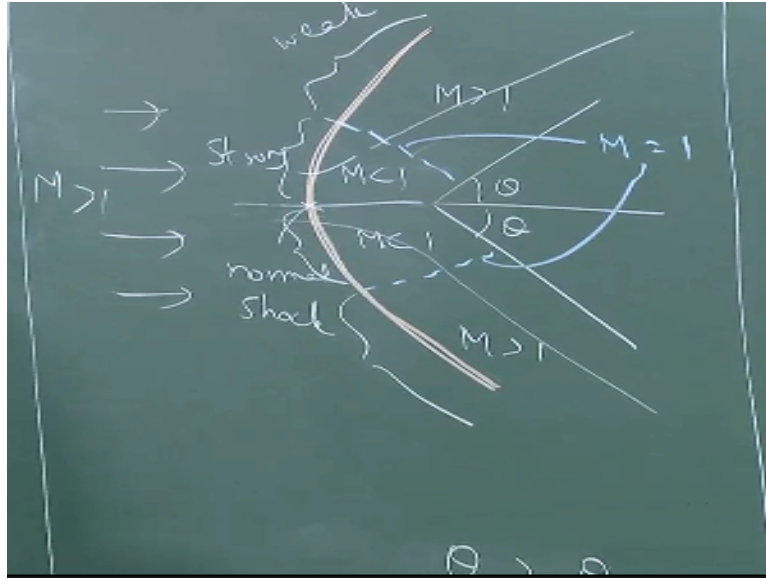 weak
M > 1
Strong
M < 1
M = 1
M > 1
θ
θ
M < 1
normal
Shock
M > 1
θ > θ